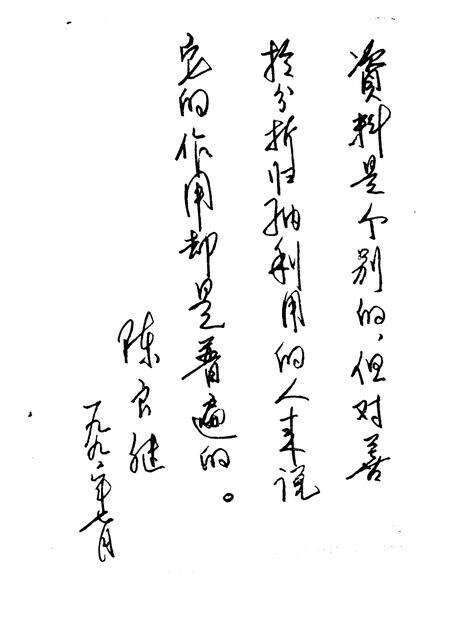 资料是个别的，但对善
于分析归纳利用的人来说
它的作用却是普遍的。
陈良继
一九九二年七月